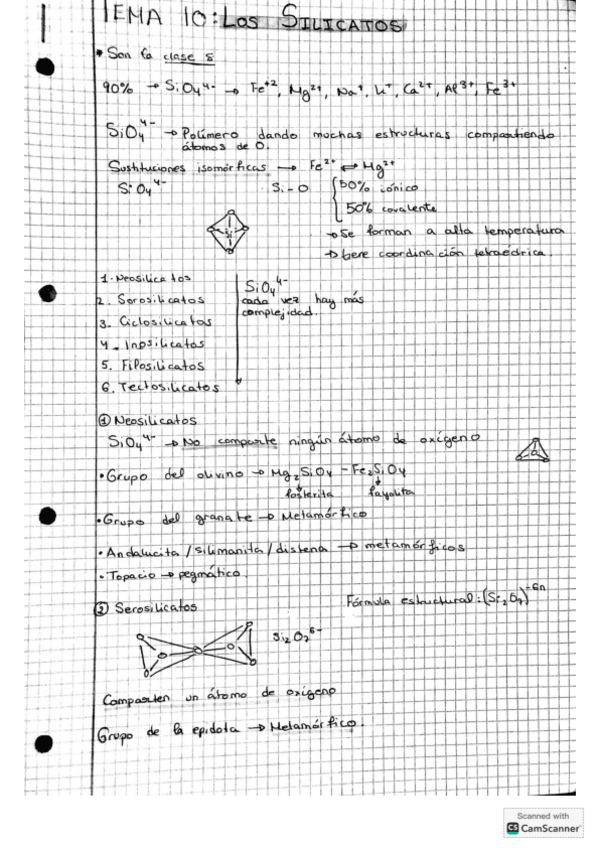 TEMA 10: LOS SILICATOS
• Son la clase 8
90% → SiO4 4- → Fe+2, Mg2+, Na+, K+, Ca2+, Al3+, Fe3+
SiO4 4- → Polímero dando muchas estructuras compartiendo
átomos de O.
Sustituciones isomórficas → Fe2+ ⇌ Mg2+
SiO4 4-
Si-O { 50% iónico
50% covalente
→ Se forman a alta temperatura
→ tiene coordinación tetraédrica.
1. Neosilicatos
2. Sorosilicatos
3. Ciclosilicatos
4. Inosilicatos
5. Filosilicatos
6. Tectosilicatos
SiO4 4-
cada vez hay más
complejidad.
① Neosilicatos
SiO4 4- → No comparte ningún átomo de oxígeno
• Grupo del olivino → Mg2SiO4 - Fe2SiO4
fosterita fayalita
• Grupo del granate → Metamórfico
• Andalucita / silimanita / distena → metamórficos
• Topacio → pegmático.
② Serosilicatos
Fórmula estructural: (Si2O7)-6n
Si2O7 6-
Comparten un átomo de oxígeno
Grupo de la epidota → Metamórfico.
Scanned with
CS CamScanner